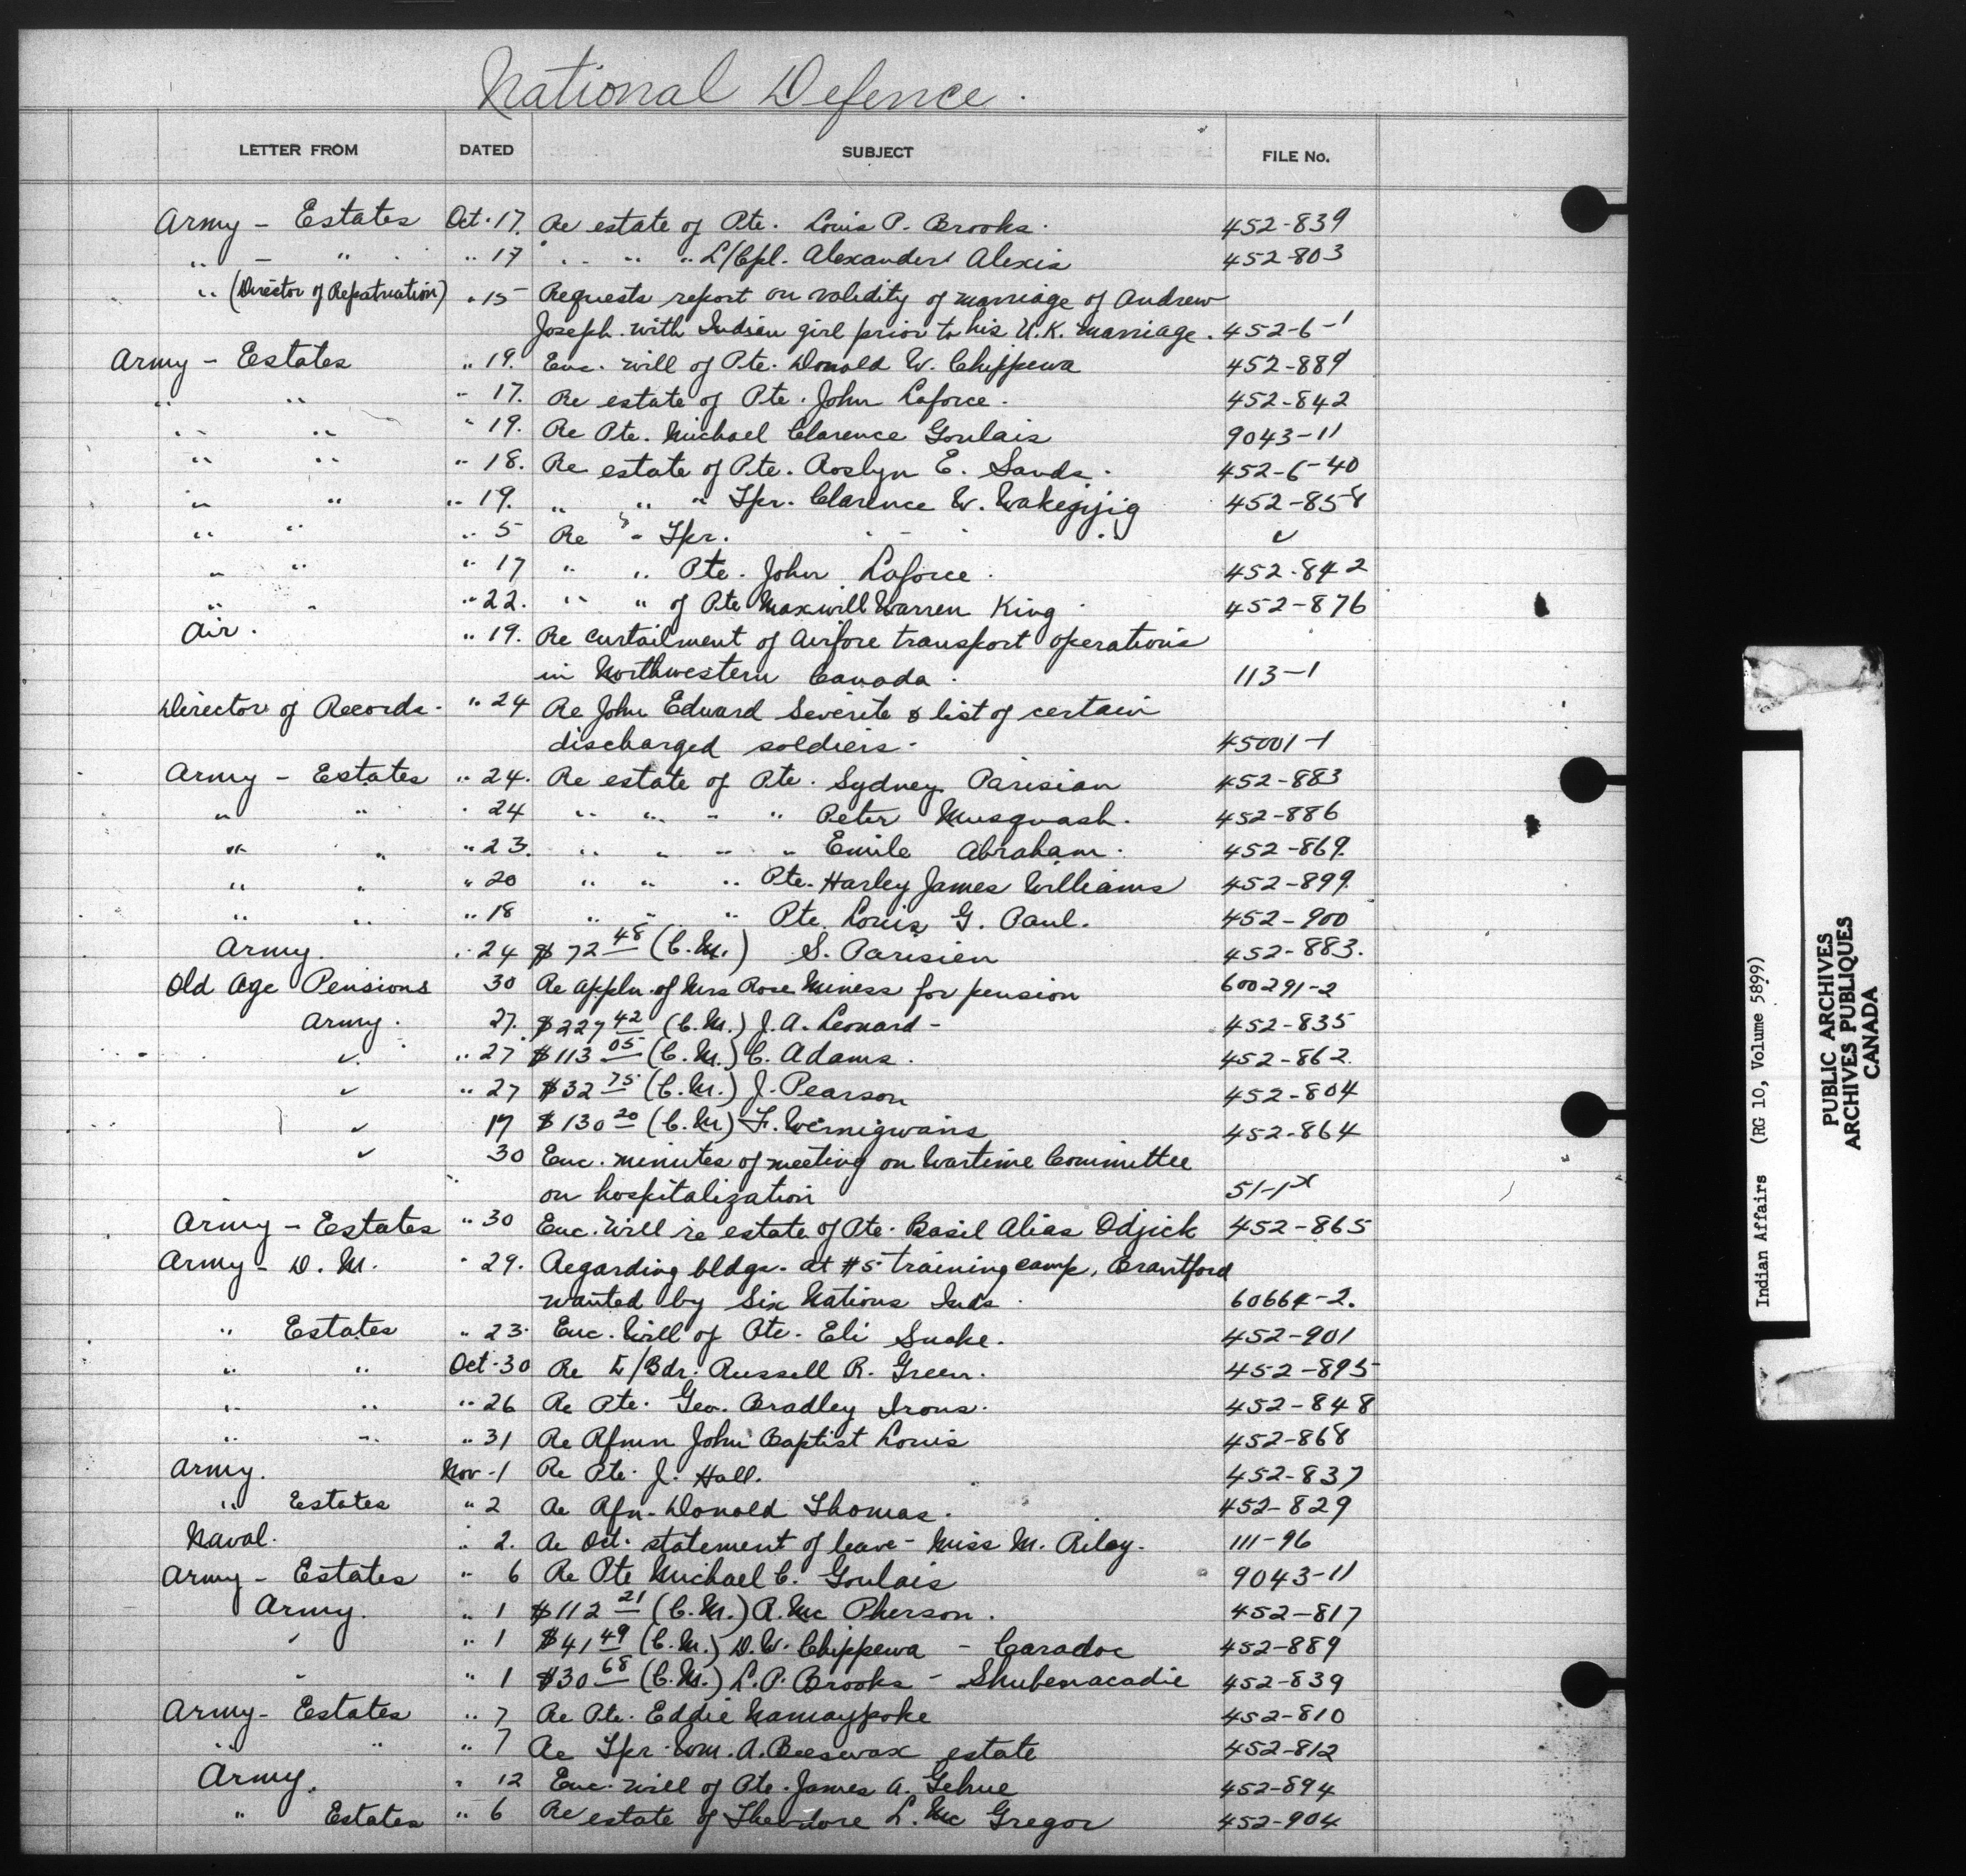 National Defence.
LETTER FROM DATED SUBJECT FILE No.
Army - Estates Oct. 17. Re estate of Pte. Louis P. Brooks. 452-839
" - " " 17 " " " L/Cpl. Alexander Alexis 452-803
" (Director of Repatriation) " 15 Requests report on validity of marriage of Andrew
Joseph with Indian girl prior to his U.K. marriage. 452-6-1
Army - Estates " 19. Enc. will of Pte. Donald W. Chippewa 452-889
" " " 17. Re estate of Pte. John Laforce. 452-842
" " " 19. Re Pte. Michael Clarence Goulais 9043-11
" " " 18. Re estate of Pte. Roslyn E. Sands. 452-6-40
" " " 19. " " " Spr. Clarence W. Wakegijig 452-858
" " " 5 Re " Spr. " " " ✓
" " " 17 " " Pte. John Laforce. 452-842
" " " 22. " " of Pte Maxwill Warren King. 452-876
Air. " 19. Re curtailment of Airfore transport operations
in Northwestern Canada. 113-1
Director of Records. " 24 Re John Edward Severite & list of certain
discharged soldiers. 45001-1
Army - Estates " 24. Re estate of Pte. Sydney Parisian 452-883
" " " 24 " " " " Peter Musquash. 452-886
" " " 23. " " " " Emile Abraham. 452-869.
" " " 20 " " " Pte. Harley James Williams 452-899.
" " " 18 " " " Pte. Louis G. Paul. 452-900
Army. " 24 $72 48 (C.M.) S. Parisien 452-883.
Old Age Pensions 30 Re appln. of Mrs Rose Miness for pension 600291-2
Army. 27. $227 42 (C.M.) J.A. Leonard - 452-835
✓ " 27 $113 05 (C.M.) C. Adams. 452-862.
✓ " 27 $32 75 (C.M.) J. Pearson 452-804
✓ 17 $130 20 (C.M) F. 452-864
✓ 30 Enc. minutes of meeting on Wartime Committee
on hospitalization 51-1x
Army - Estates " 30 Enc. Will re estate of Pte. Basil Alias Odjick 452-865
Army - D.M. " 29. Regarding bldgs. at #5 training camp, Brantford
wanted by Six Nations Inds. 60664-2.
" Estates " 23. Enc. Will of Pte. Eli Snake. 452-901
" " Oct. 30 Re L/Bdr. Russell R. Green. 452-895
" " " 26 Re Pte. Geo. Bradley Irons. 452-848
" " " 31 Re Rfmn John Baptist Louis 452-868
Army. Nov. 1 Re Pte. J. Hall. 452-837
" Estates " 2 Re Rfn. Donald Thomas. 452-829
Naval. " 2. Re Oct. statement of leave - Miss M. Riley. 111-96
Army - Estates " 6 Re Pte Michael C. Goulais 9043-11
Army. " 1 $112 21 (C.M.) R. Mc Pherson. 452-817
" " 1 $41 49 (C.M.) D.W. Chippewa - Caradoc 452-889
" " 1 $30 68 (C.M.) L.P. Brooks - Shubenacadie 452-839
Army - Estates " 7 Re Pte. Eddie Namaypoke 452-810
" " " 7 Re Spr. Wm. A. Beeswax estate 452-812
Army. " 12 Enc. will of Pte. James A. Gehue 452-894
" Estates " 6 Re estate of Theodore L. Mc Gregor 452-904
Indian Affairs (RG 10, Volume 5899)
PUBLIC ARCHIVES
ARCHIVES PUBLIQUES
CANADA